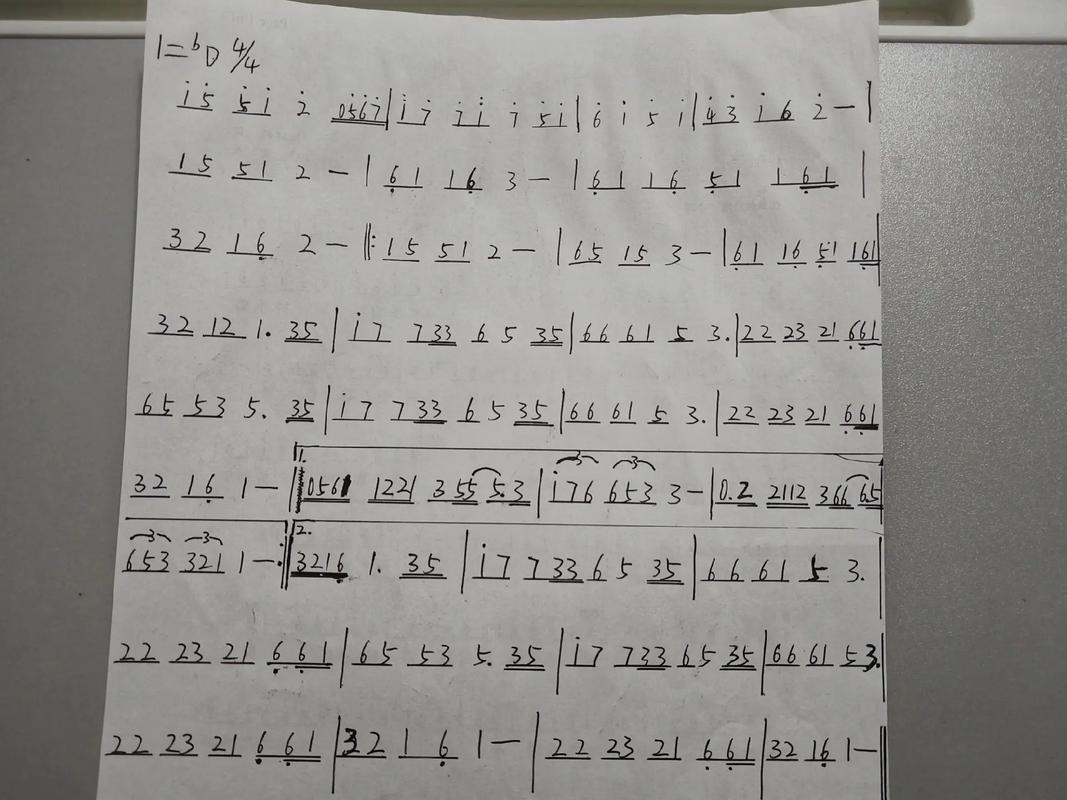 1=ᵇD 4/4
i̇5̇ 5̇i̇ 2̇ 05̇6̇7̇ | i̇7̇ 7̇i̇ 7̇ 5̇i̇ | 6̇ i̇ 5̇ i̇ | 4̇3̇ i̇6 2̇ — |
15 51 2 — | 6̣1 16̣ 3 — | 6̣1 16̣ 5̣1 16̣1 |
32 16̣ 2 — ‖: 15 51 2 — | 65 15 3 — | 6̣1 16̣ 5̣1 16̣1 |
32 12 1. 35 | i̇7 733 6 5 35 | 66 61 5 3. | 22 23 21 6̣6̣1
65 53 5. 35 | i̇7 733 6 5 35 | 66 61 5 3. | 22 23 21 6̣6̣1
32 16̣ 1 — | 1. 0561 1221 3 55 5.3 | i̇76 653 3 — | 0.2 2112 366 65
653 321 1 — :‖ 2. 3216̣ 1. 35 | i̇7 733 6 5 35 | 66 61 5 3.
22 23 21 6̣6̣1 | 65 53 5. 35 | i̇7 733 65 35 | 66 61 5 3.
22 23 21 6̣6̣1 | 32 16̣ 1 — | 22 23 21 6̣6̣1 | 32 16̣ 1 — ‖